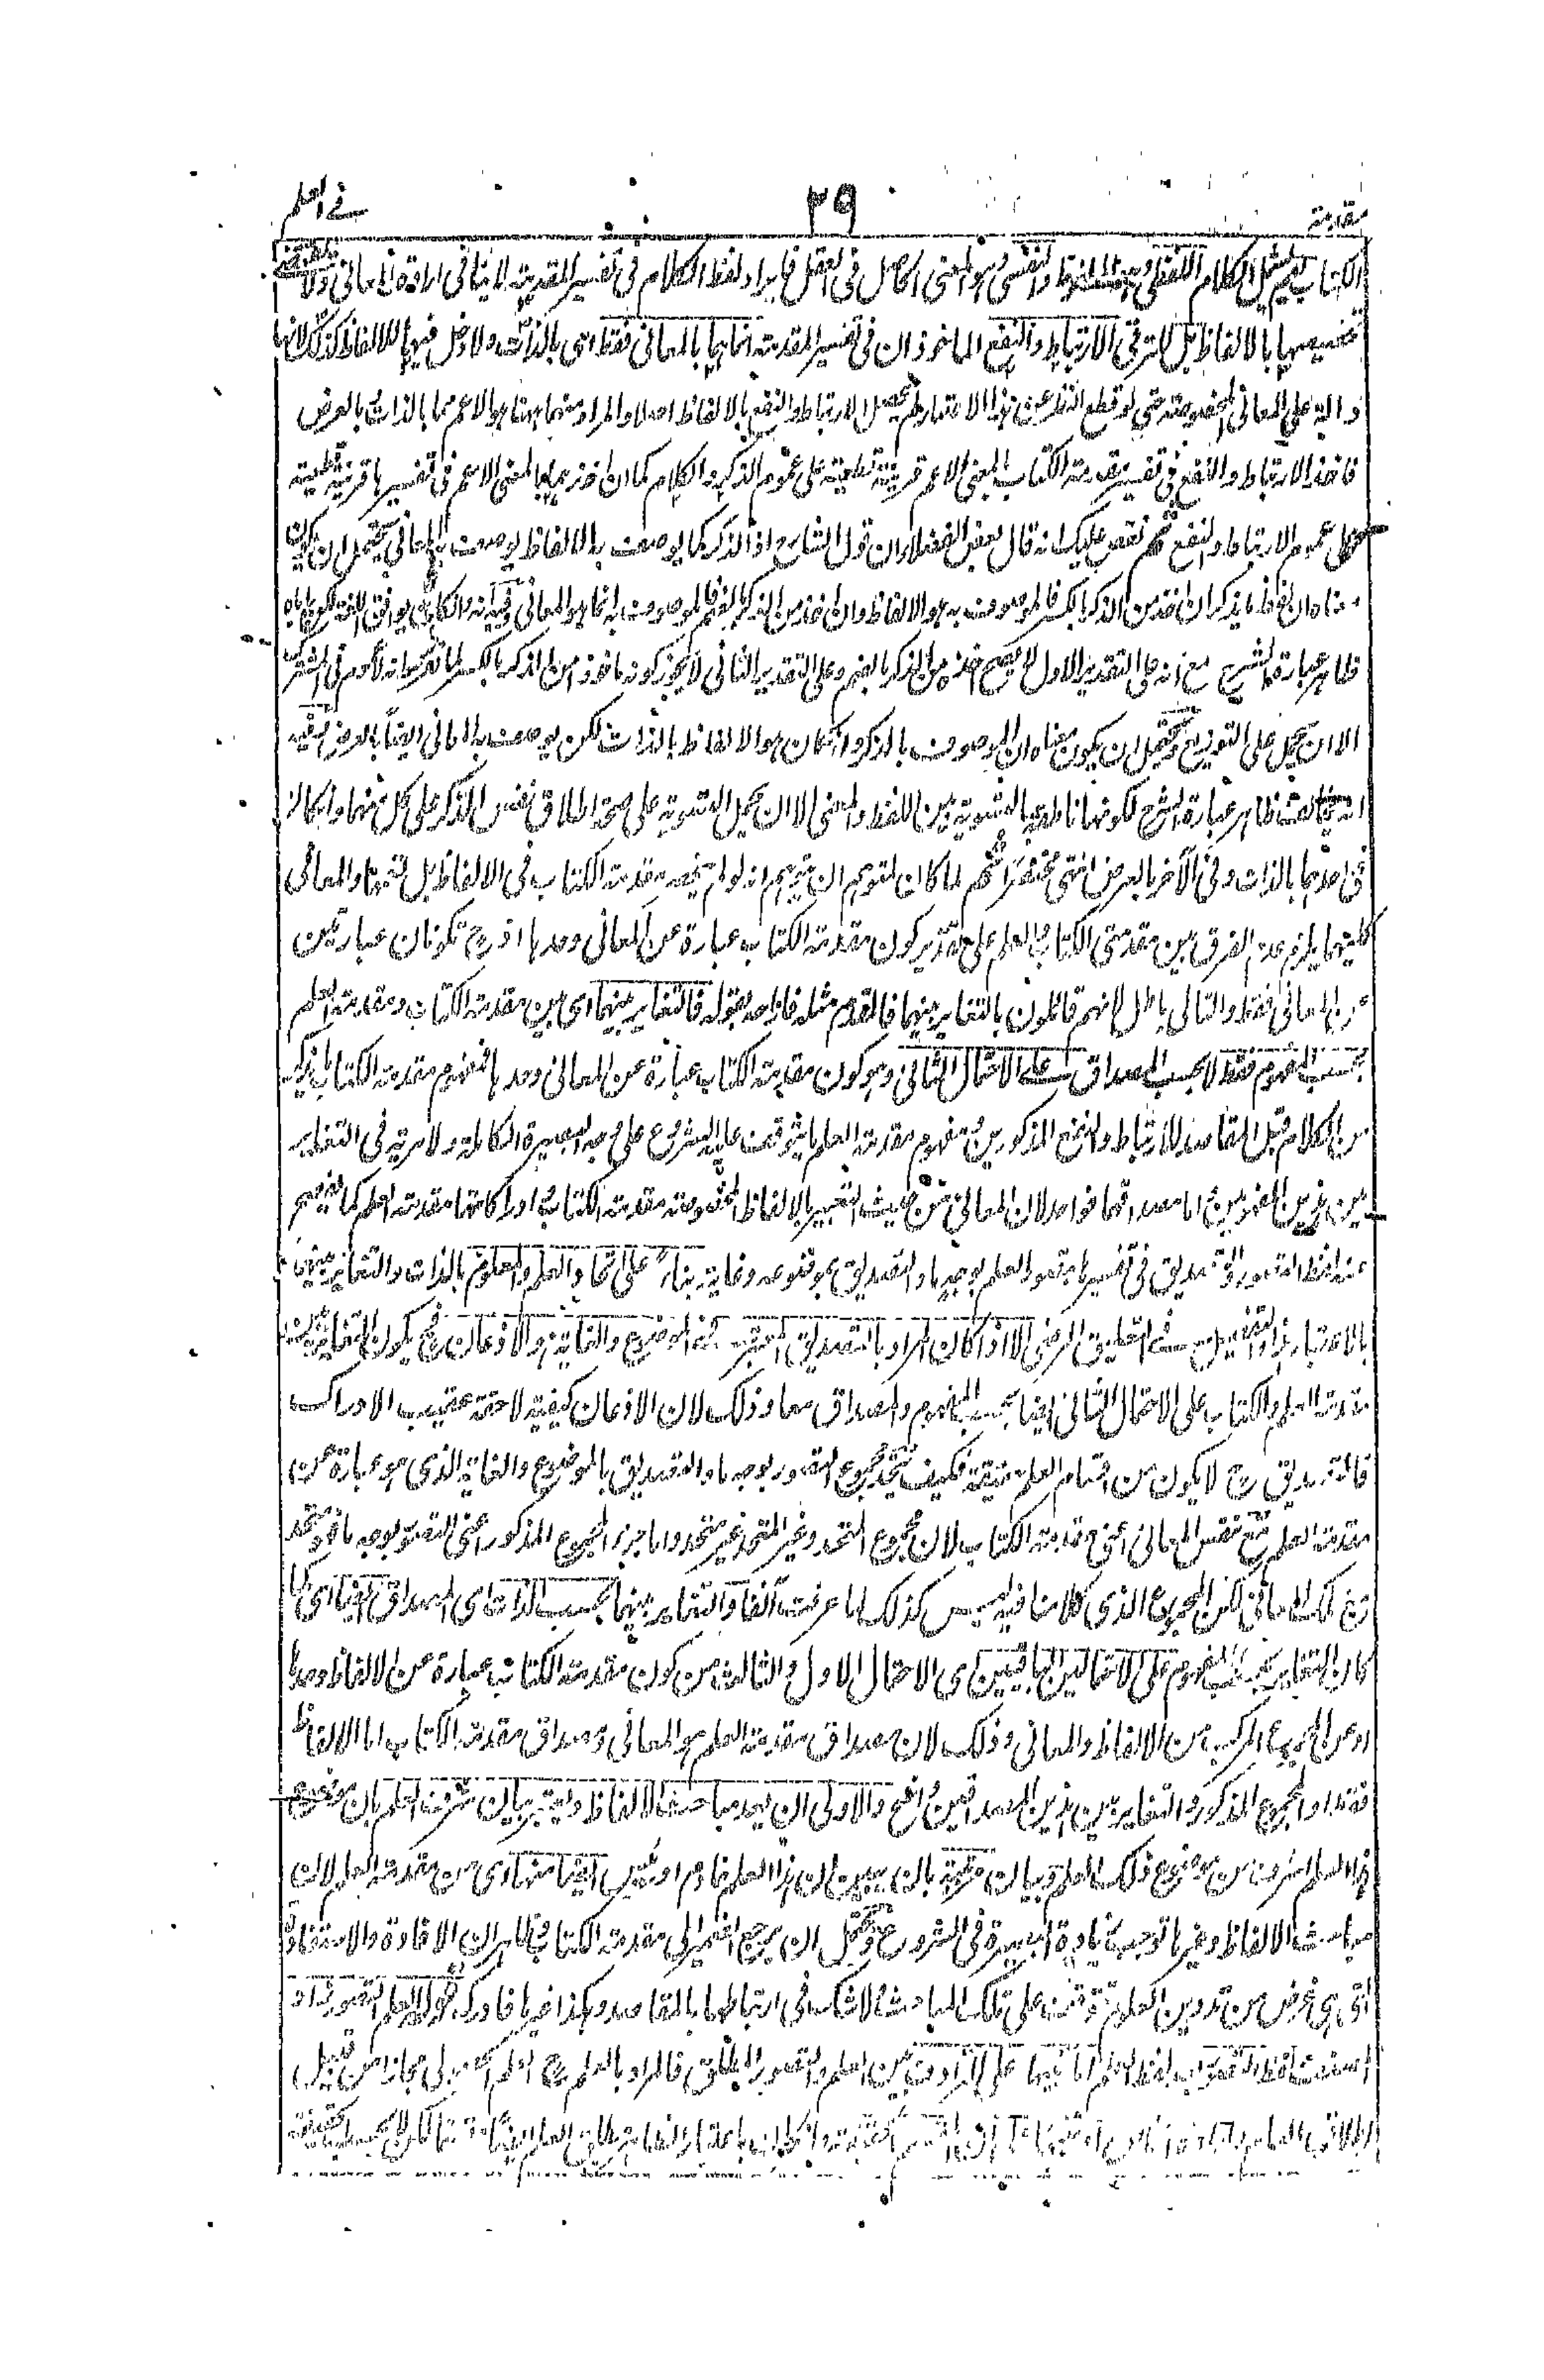 مقدمة ٢٩ فے العلم
الكتاب يشمل الكلام اللفظى وهو الملفوظ والنفسى وهو المعنى الحاصل فى العقل فايراد لفظ الكلام فى تفسير المقدمة لا ينافى ارادة المعانى ولا يقتضے
تخصيصها بالالفاظ بل لاترقى الارتباط والنفع الماخوذان فى تفسير المقدمة انما هما بالمعانى فقط اى بالذات ولا دخل فيهما للالفاظ كذلك لانها
دالة على المعانى المخصوصة حتى لو قطع النظر عن هذا الاعتبار لم يحصل الارتباط والنفع بالالفاظ اصلا والمراد منهما ههنا هو الاعم مما بالذات بالعرض
فاخذ الارتباط والنفع فى تفسير مقدمة الكتاب بالمعنى الاعم قرينة قطعية على عموم الذكر والكلام كما ان اخذهما بالمعنى الاعم فى تفسيرها قرينة قطعية
على عموم الارتباط والنفع ثم نقص عليك انه قال بعض الفضلاء ان قول الشارح اذ الذكر كما يوصف به الالفاظ يوصف به المعانى يحتمل ان يكون
معناه ان لفظ يذكر ان اخذ من الذكر بالكسر فالموصوف به هو الالفاظ وان اخذ من الذكر بالضم فالموصوف به انما هو المعانى وفيه انه وان كان يوافق اللغة لكن ياباه
ظاهر عبارة الشرح مع انه على التقدير الاول لا يصح اخذه من الذكر بالضم وعلى التقدير الثانى لا يجوز كونه ماخوذ من الذكر بالكسر لما تقرر انه لا عموم فى المشترك
الا ان يحمل على التوزيع ويحتمل ان يكون معناه ان الموصوف بالذكر وان كان هو الالفاظ بالذات لكن يوصف به المعانى ايضاً بالعرض وفيه
انه يخالف ظاهر عبارة الشرح لكونها ناطقة بالتسوية بين اللفظ والمعنى الا ان يحمل التسوية على صحة اطلاق نفس الذكر على كل منهما وان كان
فى احدهما بالذات وفى الآخر بالعرض انتهى مختصراً ثم لما كان لمتوهم ان يتوهم انه لو لم يخص مقدمة الكتاب فى الالفاظ بل تعمها والمعانى
كليهما يلزم عدم الفرق بين مقدمتى الكتاب والعلم على تقدير كون مقدمة الكتاب عبارة عن المعانى وحدها اذ ح تكونان عبارتين
عن المعانى فقط والتالى باطل لانهم قائلون بالتغاير بينهما فالمقدم مثله فازاحه بقوله فالتغاير بينهما اى بين مقدمة الكتاب ومقدمة العلم
بحسب المفهوم فقط لا بحسب المصداق على الاحتمال الثانى وهو كون مقدمة الكتاب عبارة عن المعانى وحدها فمفهوم مقدمة الكتاب ما يذكر
من الكلام قبل المقاصد للارتباط والنفع المذكورين ومفهوم مقدمة العلم ما يتوقف عليه الشروع على وجه البصيرة الكاملة ولا مرية فى التغاير
بين هذين المفهومين اما مصداقهما فواحد لان المعانى من حيث التعبير بالالفاظ المخصوصة مقدمة الكتاب وادراكاتها مقدمة العلم كما يفصح
عنه لفظ التصور والتصديق فى تفسيرها بتصور العلم بوجه ما والتصديق بموضوعه وغايته بناءً على اتحاد العلم والمعلوم بالذات والتغاير بينهما
بالاعتبار هذا التفصيل فے التعليق المرضى الا اذا كان المراد بالتصديق المعتبر فے الموضوع والغاية هو الاذعان فح يكون التغاير بين
مقدمة العلم والكتاب على الاحتمال الثانى ايضا بحسب المفهوم والمصداق معا وذلك لان الاذعان كيفية لاحقة عقيب الادراك
فالتصديق ح لا يكون من اقسام العلم حقيقة فكيف يتحد مجموع التصور بوجه ما والتصديق بالموضوع والغاية الذى هو عبارة عن
مقدمة العلم مع نفس المعانى اعنى مقدمة الكتاب لان مجموع المتحد وغير المتحد غير متحد واما جزء المجموع المذكور اعنى التصور بوجه ما فهو متحد
مع تلك المعانى لكن المجموع الذى كلامنا فيه ليس كذلك لما عرفت آنفا والتغاير بينهما بحسب الذات اى المصداق ايضا اى كما
كان التغاير بحسب المفهوم على الاحتمالين الباقيين اى الاحتمال الاول والثالث من كون مقدمة الكتاب عبارة عن الالفاظ وحدها
او عن المجموع المركب من الالفاظ والمعانى وذلك لان مصداق مقدمة العلم هو المعانى ومصداق مقدمة الكتاب اما الالفاظ
فقط او المجموع المذكور والتغاير بين هذين المصداقين واضح والاولى ان يعد مباحث الالفاظ وغيرها كبيان شرف العلم بان موضوع
هذا العلم اشرف من موضوع ذلك العلم وبيان مرتبة بان يبين ان هذا العلم خادم او رئيس ايضا منها اى من مقدمة العلم لان
مباحث الالفاظ وغيرها توجب زيادة البصيرة فى الشروع ويحتمل ان يرجع الضمير الى مقدمة الكتاب فظاهر ان الافادة والاستفادة
التى هى غرض من تدوين العلوم تتوقف على تلك المباحث فلا شك فى ارتباطها بالمقاصد وهكذا غيرها فادرك قوله العلم التصور